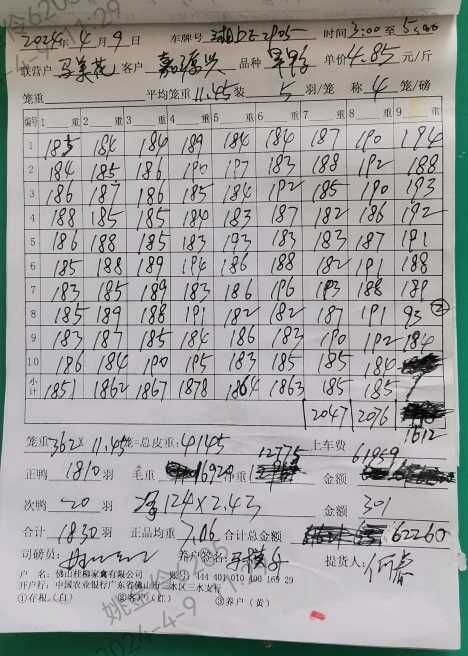 2024年4月9日 车牌号 时间3:00至5:00
联营户 马美花 客户 嘉源兴 品种 单价4.85元/斤
笼重 平均笼重11.45装 5羽/笼 称4笼/磅
编号 1重 2重 3重 4重 5重 6重 7重 8重 9重
1 185 184 184 189 184 184 187 190 194
2 184 185 186 190 197 183 188 192 188
3 186 187 186 185 184 192 185 190 193
4 188 185 185 184 183 187 182 186 192
5 186 188 185 183 193 183 183 187 191
6 185 188 189 194 186 188 182 191 188
7 183 185 189 183 186 196 193 188 189
8 185 189 188 191 182 182 187 191 93 ②
9 183 187 185 184 186 183 190 192 184
10 186 184 190 195 183 185 185 184
小计 1851 1862 1867 1878 1864 1863 185 185
2047 2076
1612
笼重362×11.45笼=总皮重:4145 上车费
正鸭 1810羽 毛重 16920 净重 12775 金额 61959
次鸭 20羽 124×2.43 金额 301
合计 1830羽 正品均重 7.06 合计总金额 62260
司磅员: 养户签名: 提货人:
户 名:佛山桂柳家禽有限公司 账号:444 401 010 400 169 29
开户行:中国农业银行广东省佛山市三水区三水支行
①存根(白) ②客户(红) ③养户(黄)
2024-4-9